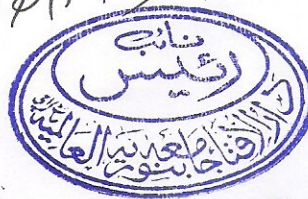 نائب
رئیس
دار الافتاء جامعہ بنوریہ العالمیہ